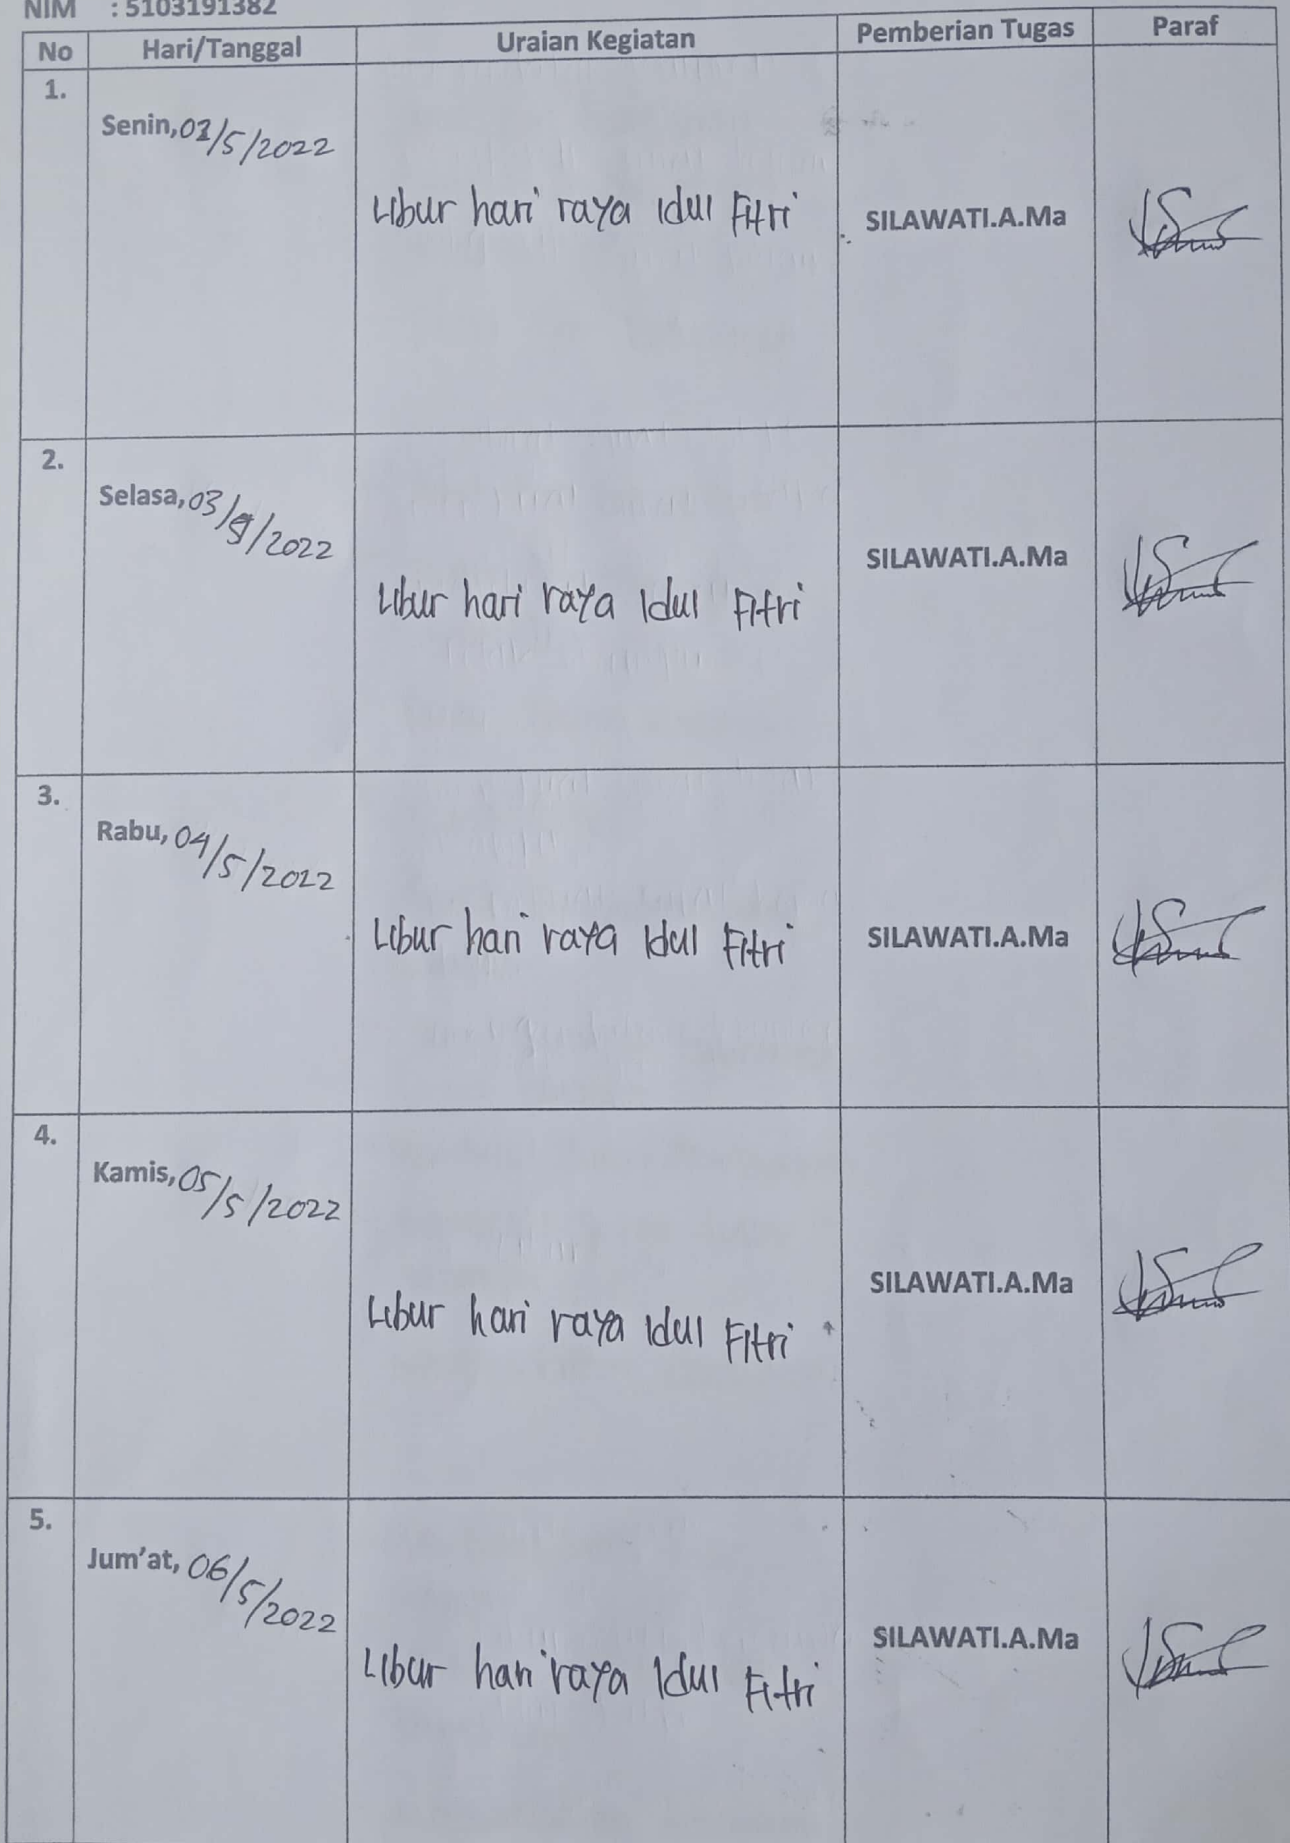 NIM : 5103191382
No Hari/Tanggal Uraian Kegiatan Pemberian Tugas Paraf
1.
Senin, 02/5/2022
Libur hari raya Idul Fitri SILAWATI.A.Ma
2.
Selasa, 03/5/2022
Libur hari raya Idul Fitri SILAWATI.A.Ma
3.
Rabu, 04/5/2022
Libur hari raya Idul Fitri SILAWATI.A.Ma
4.
Kamis, 05/5/2022
Libur hari raya Idul Fitri SILAWATI.A.Ma
5.
Jum'at, 06/5/2022
Libur hari raya Idul Fitri SILAWATI.A.Ma